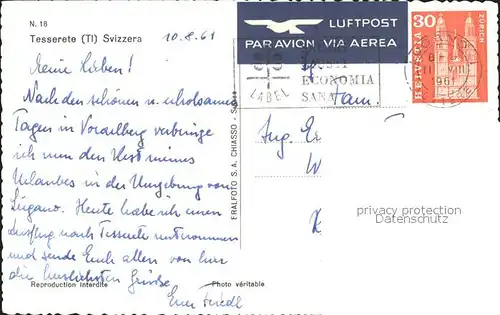 N. 18
Tesserete (TI) Svizzera
10.8.61
LUFTPOST
PAR AVION VIA AEREA
30
HELVETIA
ZÜRICH
LABEL
ECONOMIA
SANA
Meine Lieben!
Nach den schönen u. erholsamen
Tagen in Vorarlberg verbringe
ich nun den Rest meines
Urlaubes in der Umgebung von
Lugano. Heute habe ich einen
Ausflug nach Tesserete unternommen
und sende Euch allen von hier
die herzlichsten Grüße
Euer Friedl
Fam.
Ing. Er
W
K
ERALFOTO S.A. CHIASSO - Suisse
Reproduction interdite
Photo véritable
privacy protection
Datenschutz